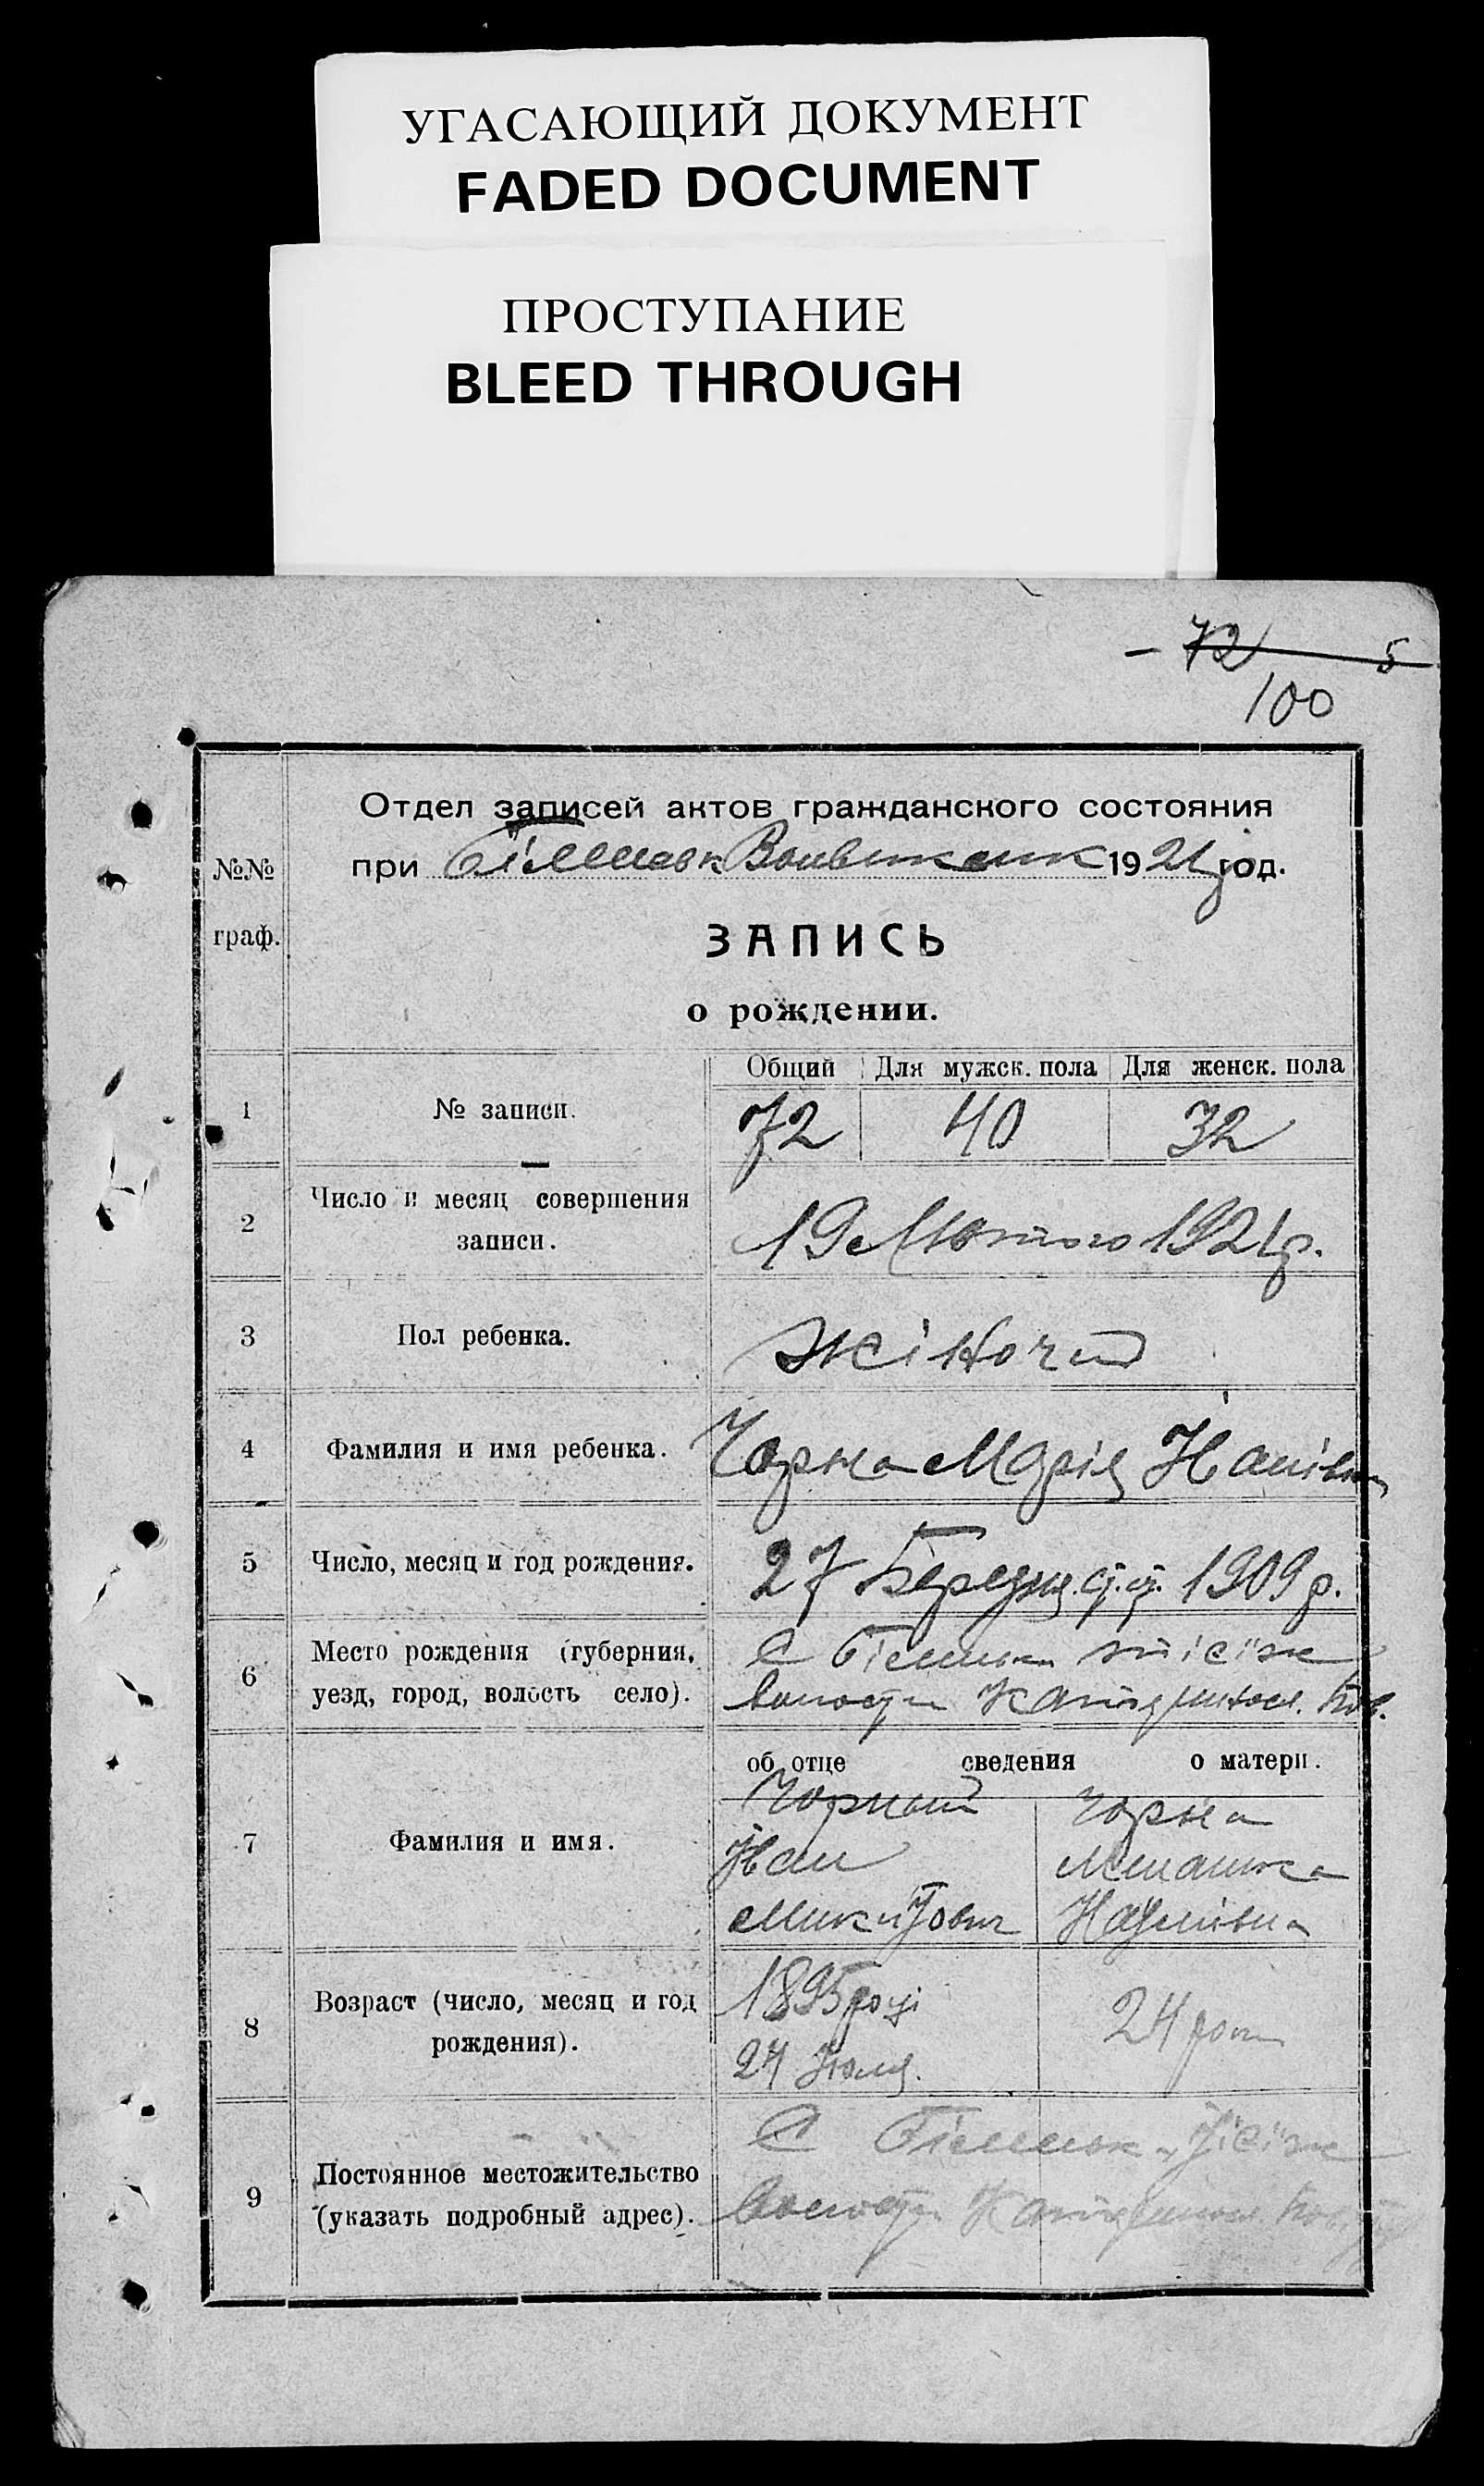 УГАСАЮЩИЙ ДОКУМЕНТ
FADED DOCUMENT
ПРОСТУПАНИЕ
BLEED THROUGH
– 72 5
100
№№ граф.
Отдел записей актов гражданского состояния
при 1921 год.
ЗАПИСЬ
о рождении.
Общий Для мужск. пола Для женск. пола
1 № записи. 72 40 32
2 Число и месяц совершения записи. 19 Лютого 1921 р.
3 Пол ребенка. жіночий
4 Фамилия и имя ребенка. Чорна Марія Іванівна
5 Число, месяц и год рождения. 27 Березня с.с. 1909 р.
6 Место рождения (губерния,
уезд, город, волость село). волости
об отце сведения о матери.
7 Фамилия и имя. Чорный Чорна
Іван
Микитович
8 Возраст (число, месяц и год 1895 році
рождения). 24 Июля. 24 роки
9 Постоянное местожительство С
(указать подробный адрес). волости